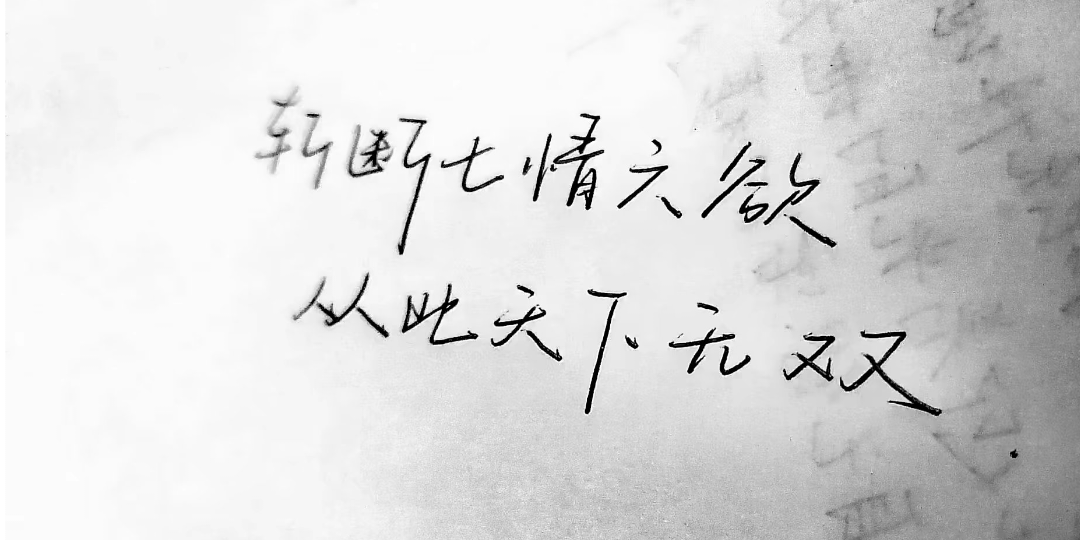 斩断七情六欲
从此天下无双.